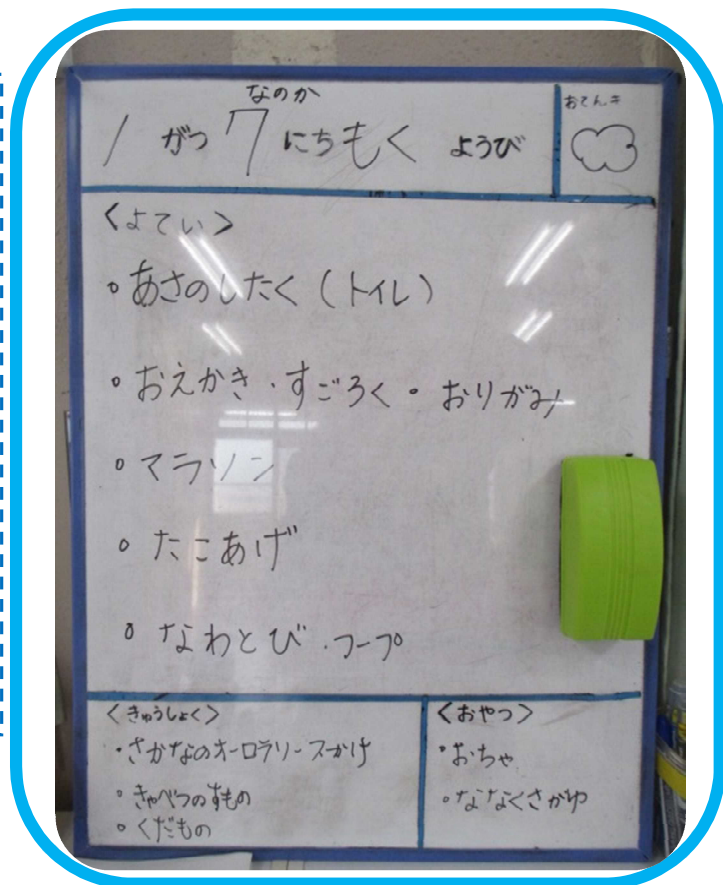 なのか
1 がつ 7 にち もく ようび
おてんき
<よてい>
。あさのしたく（トイレ）
。おえかき・すごろく。おりがみ
。マラソン
。たこあげ
。なわとび・フープ
<きゅうしょく>
・さかなのオーロラソースかけ
。きゃべつのすもの
。くだもの
<おやつ>
・おちゃ
。ななくさかゆ